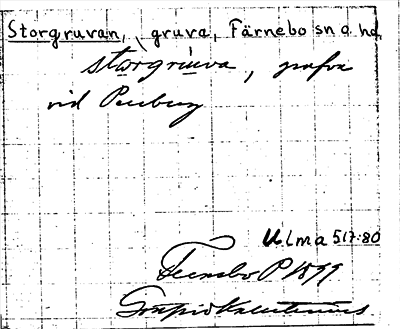 Storgruvan, gruva, Färnebo sn o. hd.
storgruva, grufva
vid Persberg
Ulma 517:80
Fernebo P 1899